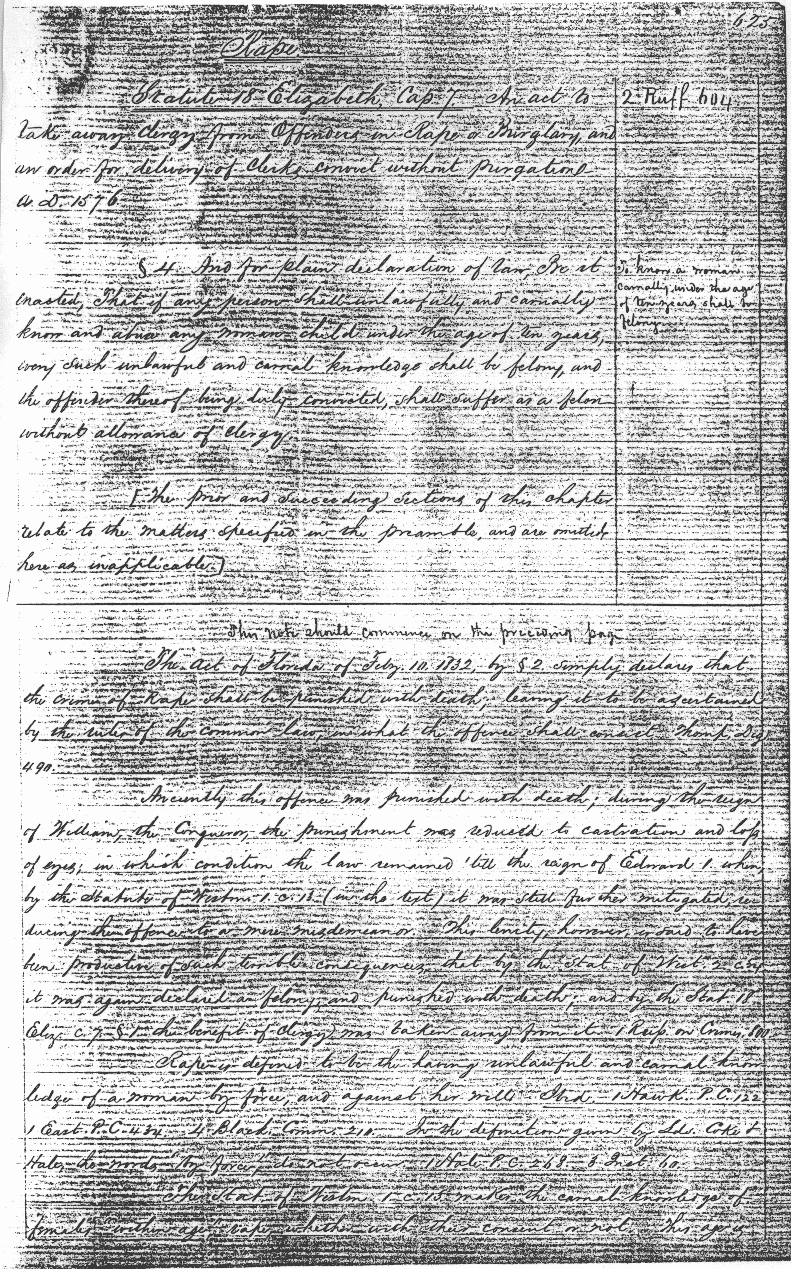 625
Rape
Statute 18 Elizabeth, Cap. 7. An act to
2 Ruff 604
take away Clergy from Offenders in Rape or Burglary, and
an order for delivery of Clerks convict without Purgation
A.D. 1576.
§ 4. And for plain declaration of law, Be it
enacted, That if any person shall unlawfully and carnally
know and abuse any woman child under the age of ten years,
every such unlawful and carnal knowledge shall be felony, and
the offender thereof being duly convicted, shall suffer as a felon
without allowance of Clergy.
To know a woman
carnally under the age
of ten years shall be
felony.
[The prior and succeeding sections of this chapter
relate to the matters specified in the preamble, and are omitted
here as inapplicable.]
This note should commence on the preceding page
The Act of Florida of Feby. 10. 1832, by § 2. simply declares that
the crime of Rape shall be punished with death, leaving it to be ascertained
by the rules of the common law, in what the offence shall consist. Thomp. Dig.
490.
Anciently this offence was punished with death; during the reign
of William, the Conqueror, the punishment was reduced to castration and loss
of eyes; in which condition the law remained 'till the reign of Edward 1. when,
by the Statute of Westm. 1. c. 13. (in the text) it was still further mitigated, re-
ducing the offence to a mere misdemeanor. This lenity, however, is said to have
been productive of such terrible consequences, that by the Stat. of West. 2. c. 34
it was again declared a felony, and punished with death; and by the Stat. 18
Eliz. c. 7. § 1. the benefit of Clergy was taken away from it. 1 Rus. on Crimes,
Rape is defined to be the having unlawful and carnal know-
ledge of a woman by force, and against her will. Ibid. 1 Hawk. P.C. 122
1 East. P.C. 434. 4 Black. Comm. 210. In the definition given by Ld. Coke &
Hale, the words "by force" do not occur. 1 Hale P.C. 268. 3 Inst. 60.
The Stat. of Westm. 1. c. 13. makes the carnal knowledge of
females "within age" rape, whether with their consent or not. This age is